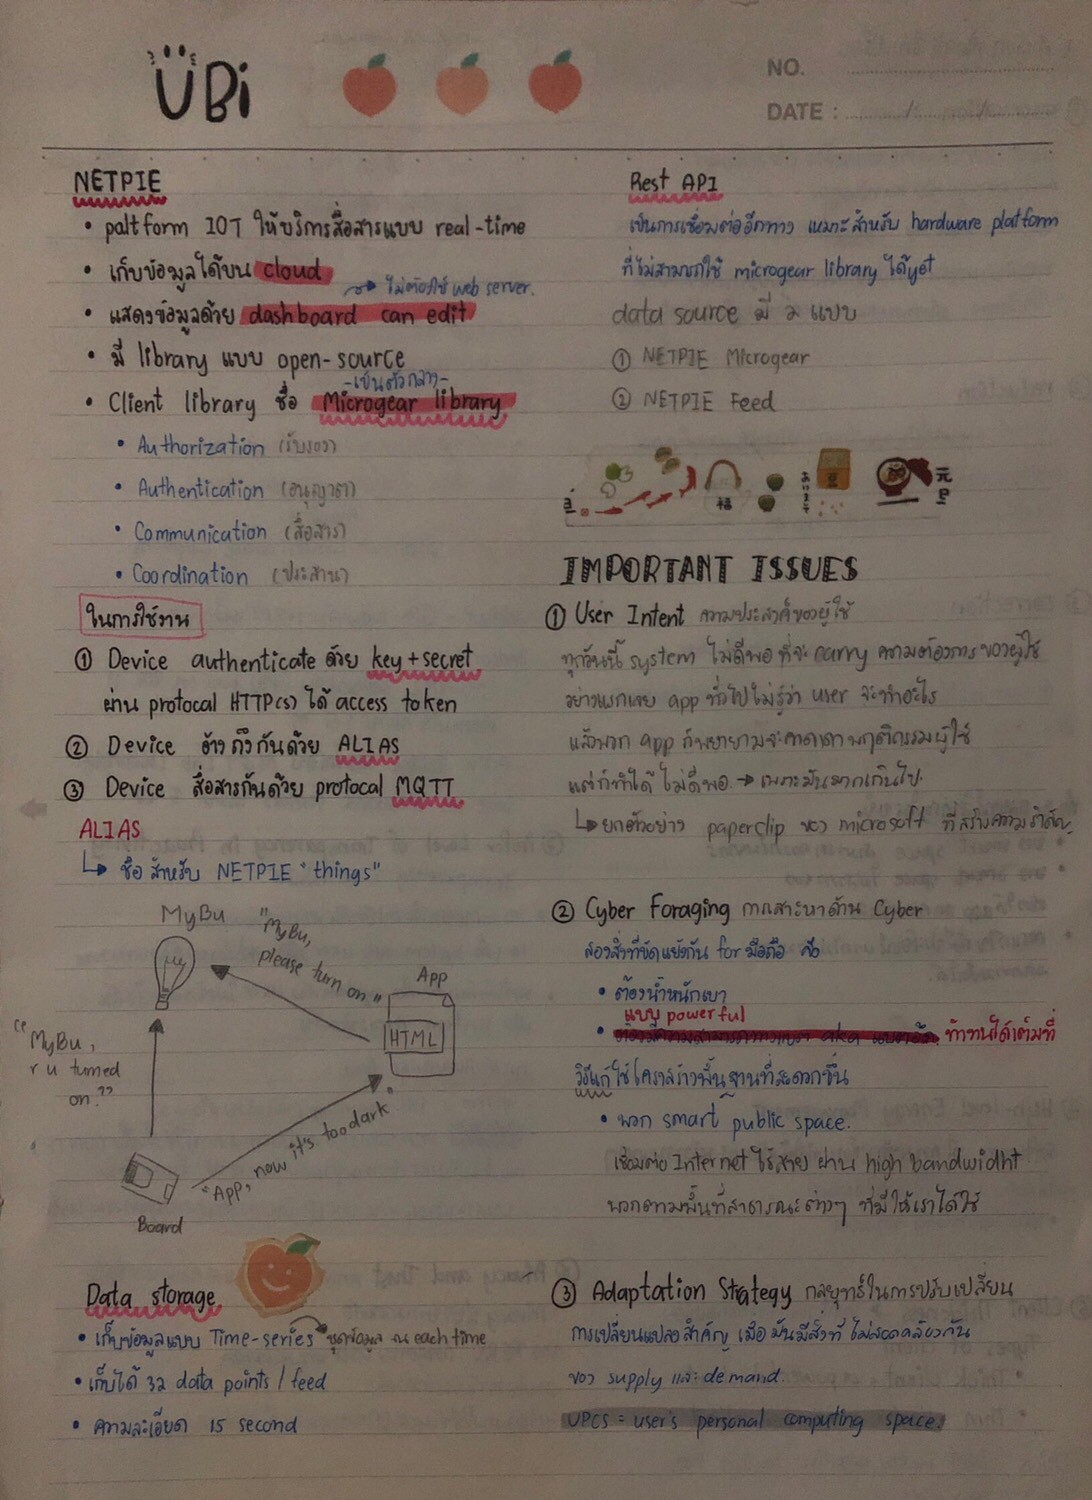 UBi
NO.
DATE :
NETPIE
• paltform IOT ให้บริการสื่อสารแบบ real-time
• เก็บข้อมูลได้บน cloud
→ ไม่ต้องใช้ web server.
• แสดงข้อมูลด้วย dashboard can edit
• มี library แบบ open-source
-เป็นตัวกลาง-
• Client library ชื่อ Microgear library
• Authorization (รับรอง)
• Authentication (อนุญาต)
• Communication (สื่อสาร)
• Coordination (ประสาน)
ในการใช้งาน
① Device authenticate ด้วย key+secret
ผ่าน protocal HTTP(s) ได้ access token
② Device อ้างถึงกันด้วย ALIAS
③ Device สื่อสารกันด้วย protocal MQTT
ALIAS
↳ ชื่อ สำหรับ NETPIE "things"
MyBu
"MyBu,
please turn on"
App
HTML
"MyBu,
r u turned
on.??
"App, now it's too dark."
Board
Data storage
• เก็บข้อมูลแบบ Time-series ชุดข้อมูล ณ each time
• เก็บได้ 32 data points / feed
• ความละเอียด 15 second
Rest API
เป็นการเชื่อมต่ออีกทาง เหมาะสำหรับ hardware platform
ที่ไม่สามารถใช้ microgear library ได้yet
data source มี ๖ แบบ
① NETPIE Microgear
② NETPIE Feed
福
元
旦
IMPORTANT ISSUES
① User Intent ความประสงค์ของผู้ใช้
ทุกวันนี้ system ไม่ดีพอ ที่จะ carry ความต้องการ ของผู้ใช้
อย่างแรกเลย app ทั่วไป ไม่รู้ว่า user จะทำอะไร
แล้วพวก app ก็พยายามจะคาดเดา พฤติกรรมผู้ใช้
แต่ก็ทำได้ ไม่ดีพอ → เพราะมันมากเกินไป
↳ ยกตัวอย่าง paperclip ของ microsoft ที่สร้างความรำคาญ
② Cyber Foraging การเสาะหาด้าน Cyber
สองสิ่งที่ขัดแย้งกัน for มือถือ คือ
• ต้องน้ำหนักเบา
แบบ powerful
• ทำงานได้เต็มที่
วิธีแก้ ใช้โครงสร้างพื้นฐานที่สะดวกขึ้น
• พวก smart public space.
เชื่อมต่อ Internet ไร้สาย ผ่าน high bandwidht
พวกตามพื้นที่สาธารณะต่างๆ ที่มีให้เราได้ใช้
③ Adaptation Strategy กลยุทธ์ในการปรับเปลี่ยน
การเปลี่ยนแปลง สำคัญ เมื่อ มันมีสิ่งที่ ไม่สอดคล้องกัน
ของ supply และ demand.
UPCS = user's personal computing space.